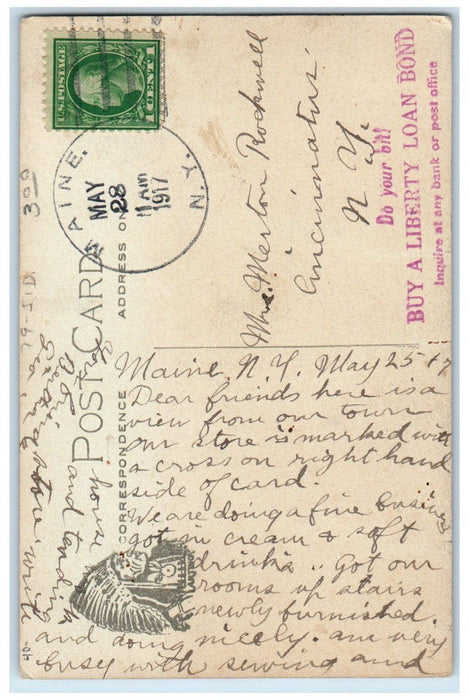 U.S. POSTAGE
1 CENT 1
MAINE.
MAY
28
1 AM
1917
N.Y.
Do your bit!
BUY A LIBERTY LOAN BOND
Inquire at any bank or post office
POST CARD
ADDRESS ON
CORRESPONDENCE
Mrs. Merton Rockwell
Cincinnatus.
N. Y.
Maine, N.Y. May 25 - 17
Dear friends here is a
view from our town
our store is marked with
a cross on right hand
side of card.
We are doing a fine business
got in cream & soft
drinks.. Got our
rooms up stairs
newly furnished.
and doing nicely. am very
busy with sewing and
house
and tending
store. write
Geo.
300
79-51D
40-